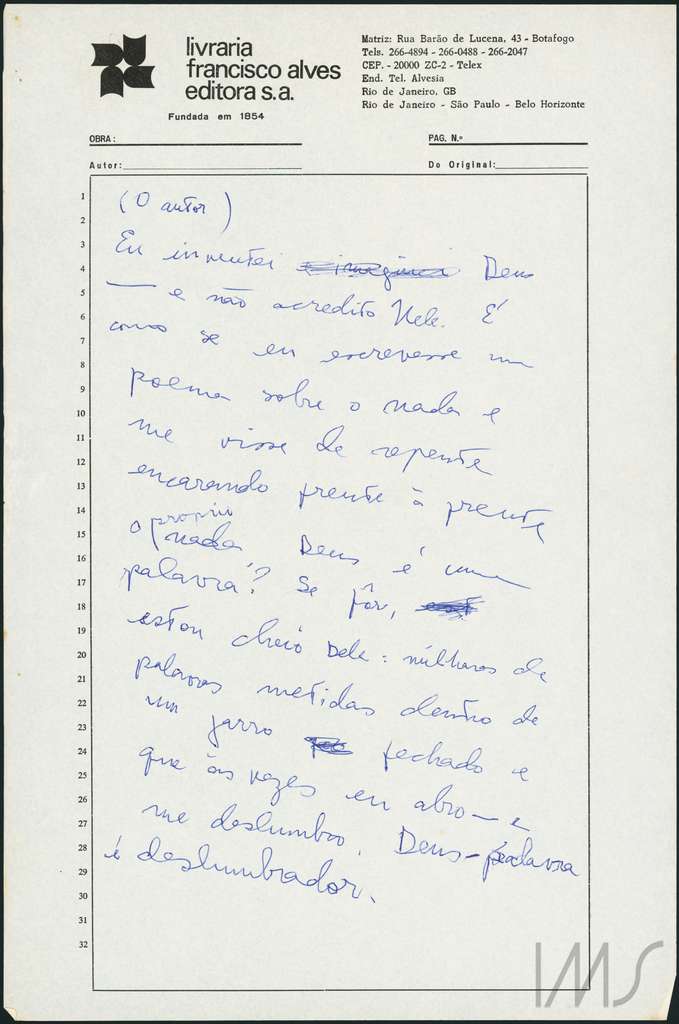 livraria
francisco alves
editora s.a.
Fundada em 1854
Matriz: Rua Barão de Lucena, 43 - Botafogo
Tels. 266-4894 - 266-0488 - 266-2047
CEP. - 20000 ZC-2 - Telex
End. Tel. Alvesia
Rio de Janeiro, GB
Rio de Janeiro - São Paulo - Belo Horizonte
OBRA:
PAG. N.º
Autor:
Do Original:
1
2
3
4
5
6
7
8
9
10
11
12
13
14
15
16
17
18
19
20
21
22
23
24
25
26
27
28
29
30
31
32
(O autor)
Eu inventei Deus
— e não acredito Nele. É
como se eu escrevesse um
poema sobre o nada e
me visse de repente
encarando frente à frente
o próprio nada. Deus é uma
palavra? Se fôr,
estou cheio Dele: milhares de
palavras metidas dentro de
um jarro fechado e
que às vezes eu abro — e
me deslumbro. Deus-palavra
é deslumbrador.
IMS